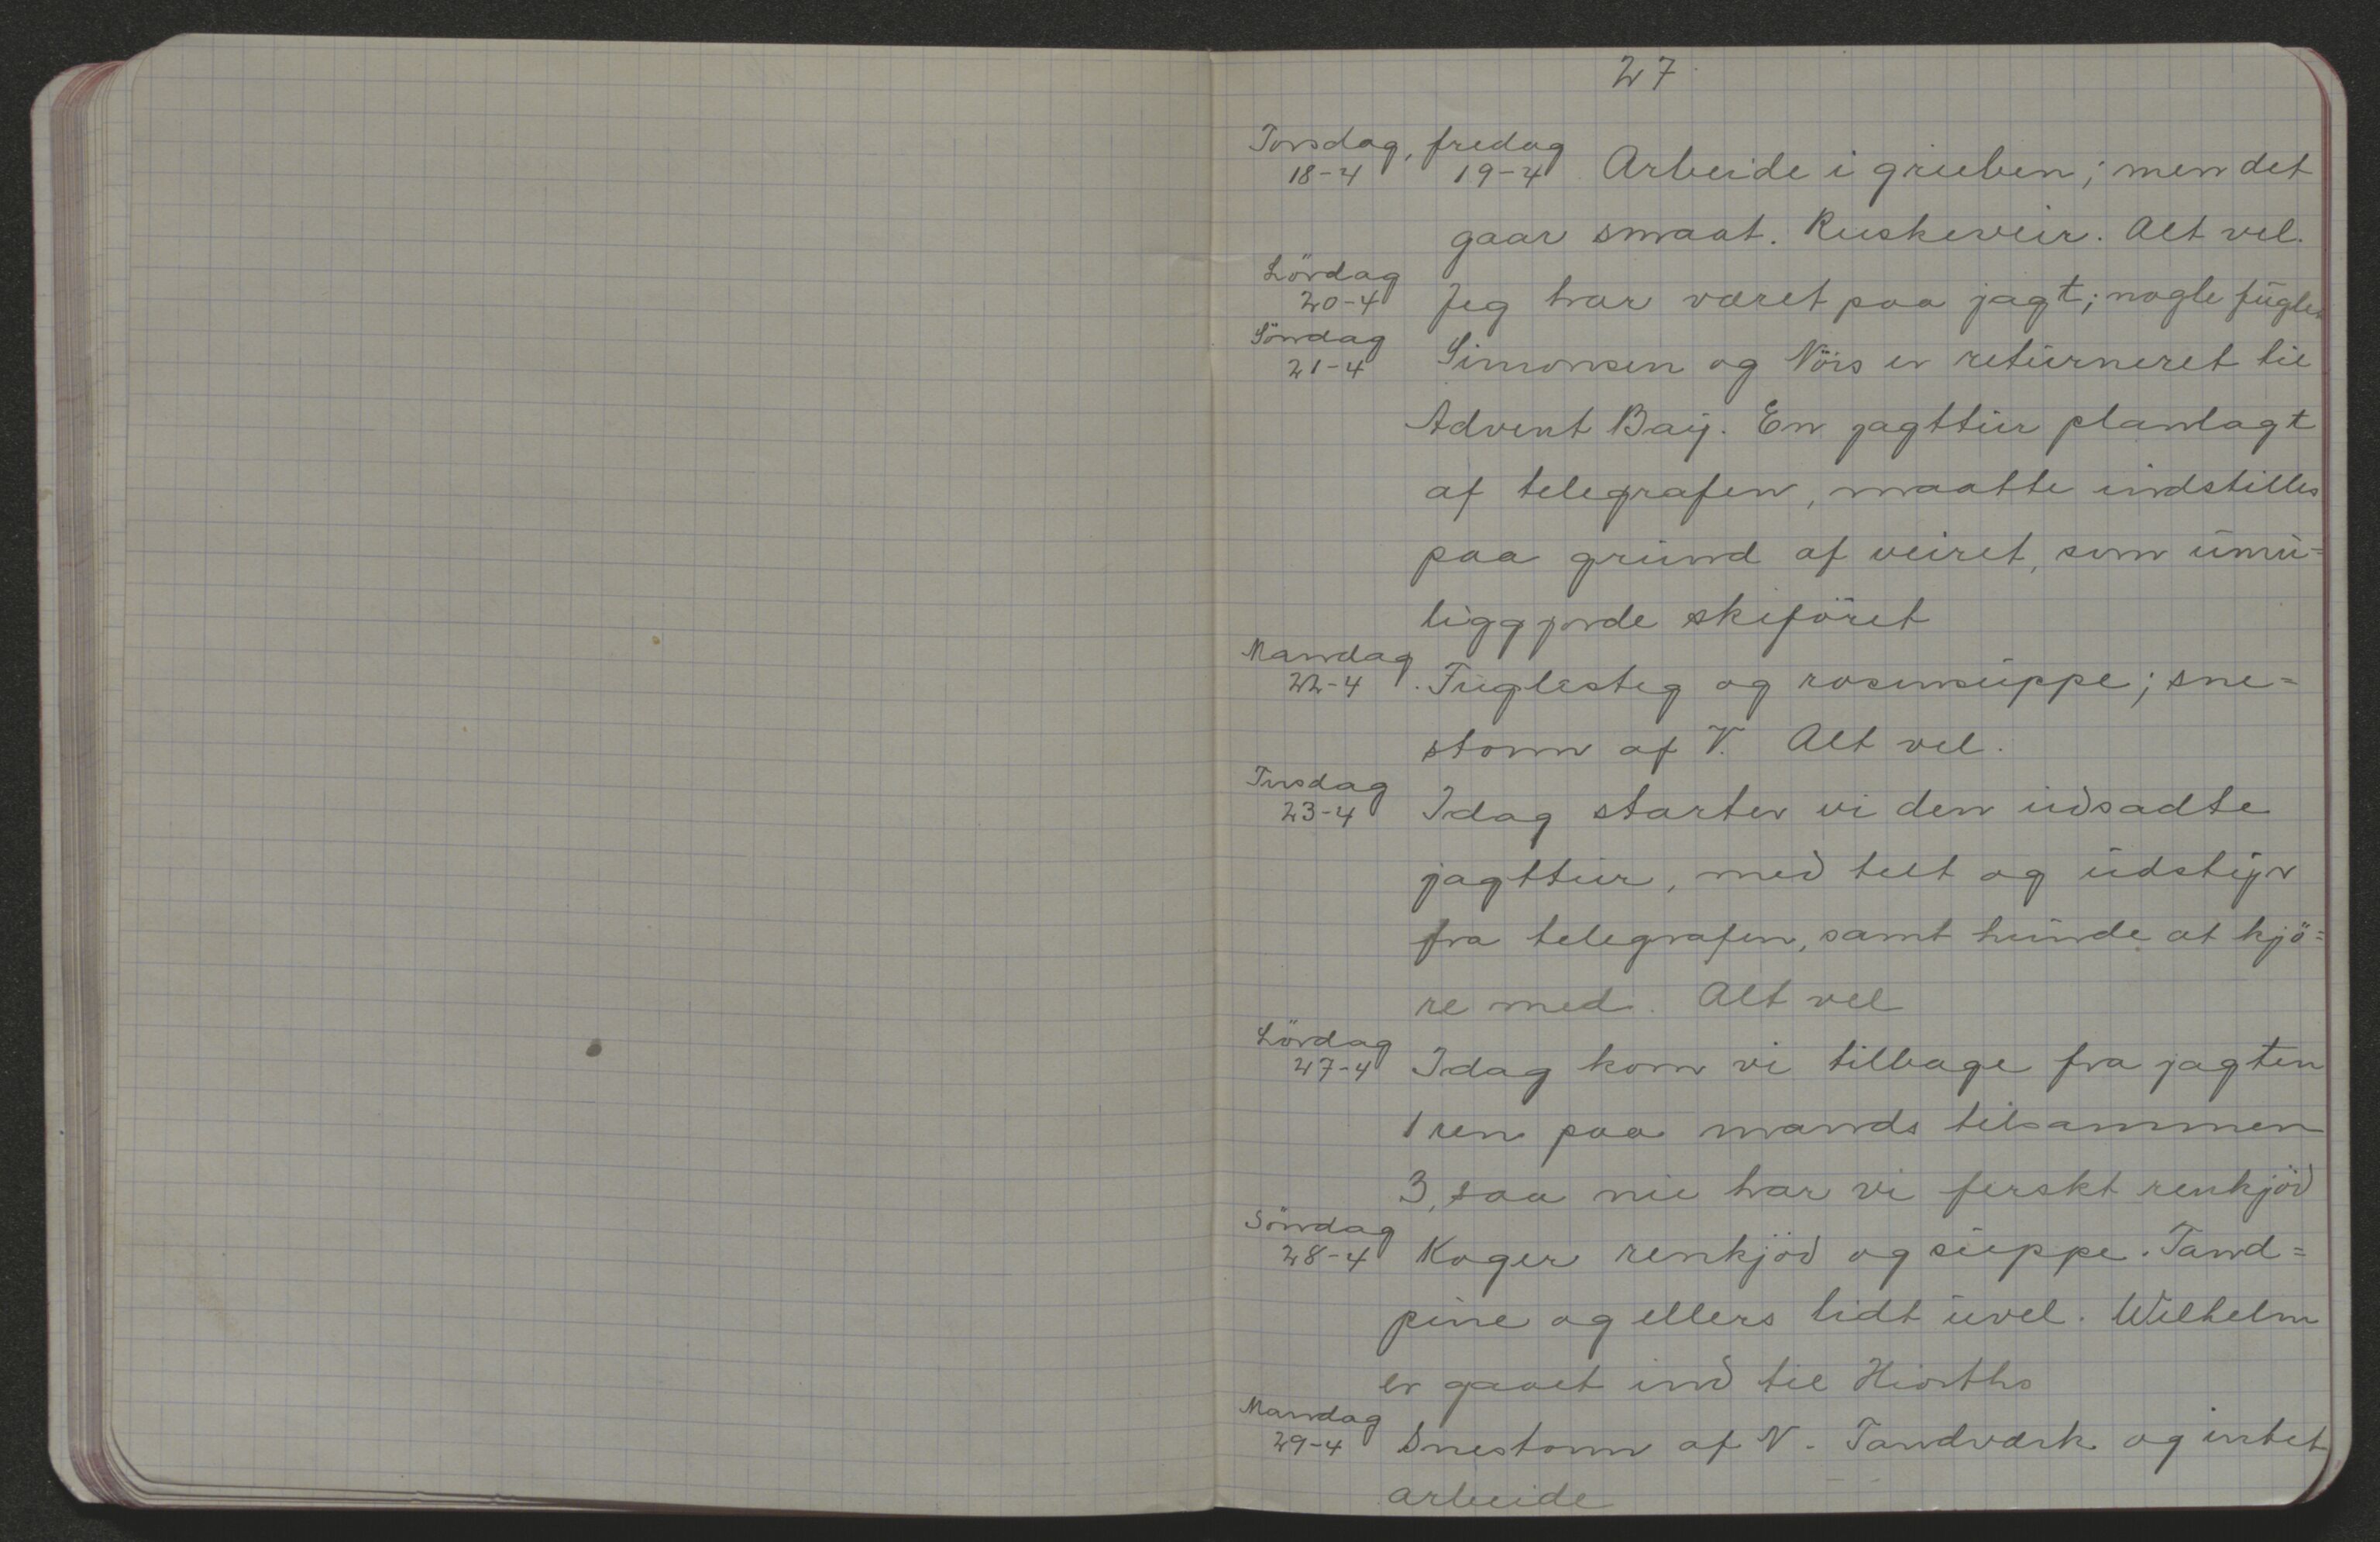 27
Torsdag, fredag
18-4 19-4 Arbeide i gruben; men det
gaar smaat. Ruskeveir. Alt vel.
Lördag
20-4 Jeg har været paa jagt; nogle fugler
Söndag
21-4 Simonsen og Nöis er returneret til
Advent Bay. En jagttur planlagt
af telegrafen, maatte indstilles
paa grund af veiret, som umu=
liggjorde skiföret
Mandag
22-4 Fuglesteg og rosinsuppe; sne=
storm af V. Alt vel.
Tirsdag
23-4 Idag starter vi den udsadte
jagttur, med telt og udstyr
fra telegrafen, samt hunde at kjö=
re med. Alt vel
Lördag
27-4 Idag kom vi tilbage fra jagten
1 ren paa mands tilsammen
3, saa nu har vi ferskt renkjöd
Söndag
28-4 Koger renkjöd og suppe. Tand=
pine og ellers lidt uvel. Wilhelm
er gaaet ind til Hiorths
Mandag
29-4 Snestorm af N. Tandværk og intet
arbeide